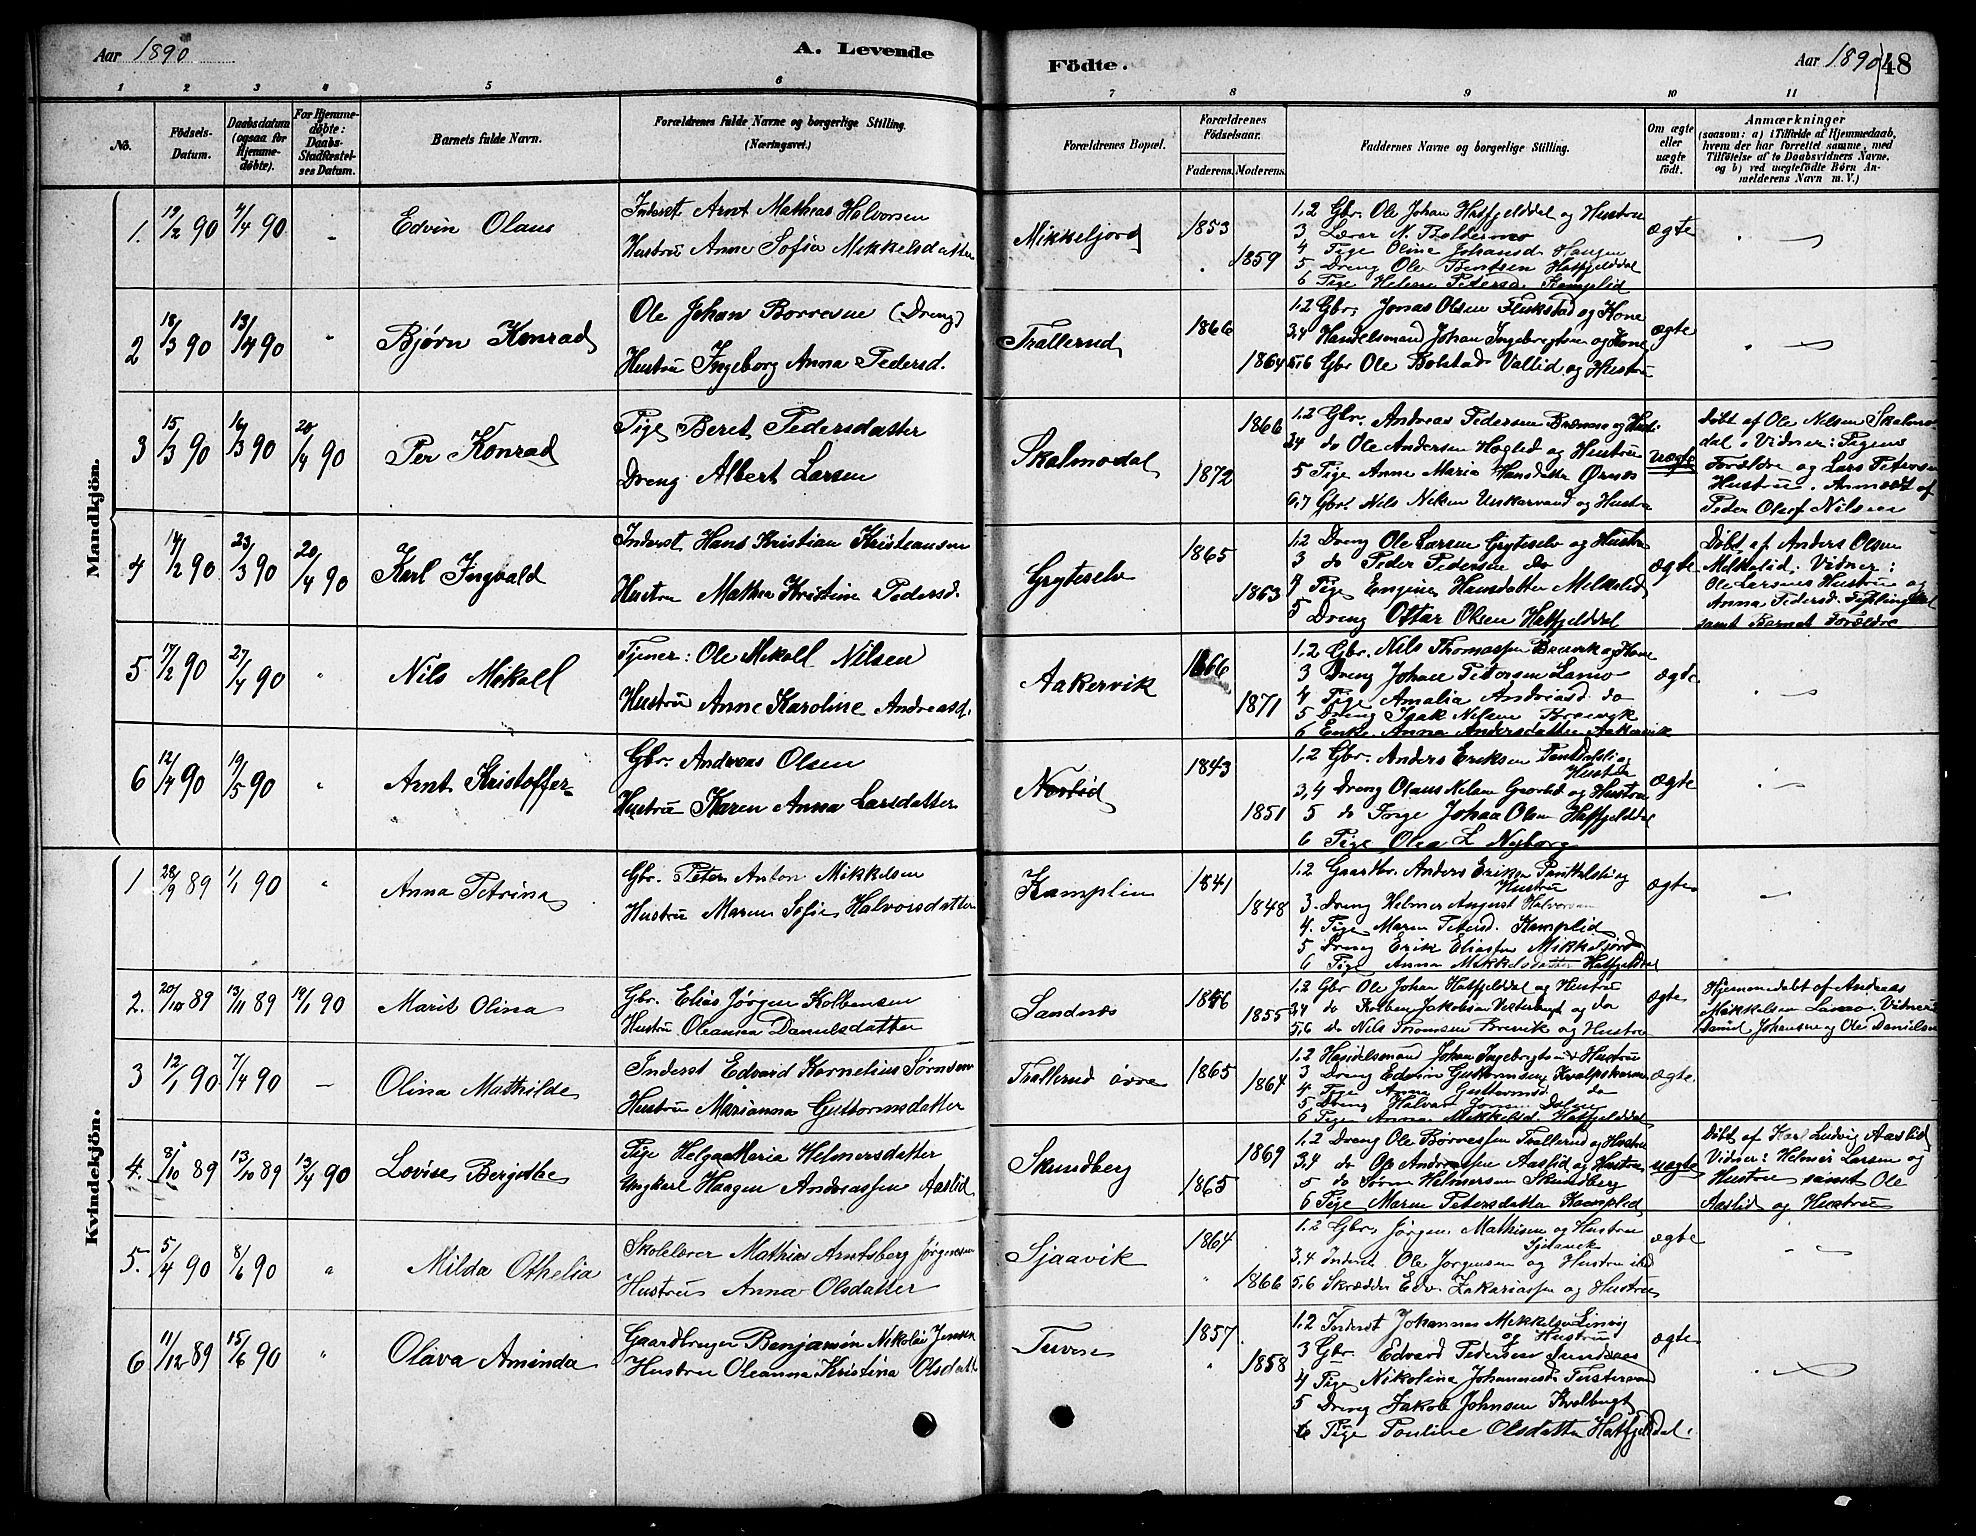 Aar 1890
A. Levende
Födte.
Aar 1890
48
1 2 3 4 5 6 7 8 9 10 11
No.
Födsels-Datum.
Daabsdatum (ogsaa for Hjemme-døbte).
For Hjemme-døbte: Daabs-Stadfæstel-ses Datum.
Barnets fulde Navn.
Forældrenes fulde Navne og borgerlige Stilling. (Næringsvei.)
Forældrenes Bopæl.
Forældrenes Födselsaar.
Faderens. Moderens.
Faddernes Navne og borgerlige Stilling.
Om ægte eller uægte födt.
Anmærkninger
(saasom: a) i Tilfælde af Hjemmedaab, hvem der har forrettet samme, med Tilføielse af to Daabsvidners Navne, og b) ved uægtefödte Børn An-melderens Navn m. V.)
Mandkjön.
1. 19/2 90 4/4 90 - Edvin Olaus
Inderst Arnt Mathias Halvorsen
Hustru Anne Sofia Mikkelsdatter
Mikkeljord 1853 1859
1,2 Gbr. Ole Johan Hatfjelddal og Hustru
3 Lærer N. Baldermo
4 Pige Oline Johansd. Haugen
5 Dreng Ole Bentsen Hatfjelddal
6 Pige Helene Petersd. Kamplid
ægte
2 18/3 90 13/4 90 " Bjørn Konrad
Ole Johan Borresen (Dreng)
Hustru Ingeborg Anna Pedersd.
Trallerud 1866 1864
1,2 Gbr. Jonas Olsen Flukstad og Kone
3,4 Handelsmand Johan Ingebrigtsen og Kone
5,6 Gbr Ole Bolstad Vallid og Hustru
ægte
3 15/3 90 16/3 90 20/4 90 Per Konrad
Pige Beret Pedersdatter
Dreng Albert Larsen
Skalmodal 1866 1872
1,2 Gbr. Andreas Pedersen
3,4 do Ole Andersen Haglid og Hustru
5 Pige Anne Maria Hansdatter Ørnes
6,7 Gbr. Nils Nilsen Unskarvand og Hustru
uægte
Døbt af Ole Nilsen Skalmo-
dal. Vidner: Pigens
Forældre og Lars Petersen
Hustru. Anmeldt af
Peder Oluf Nilsen
4 14/2 90 23/3 90 20/4 90 Karl Ingvald
Inderst Hans Kristian Kristiansen
Hustru Mathea Kristine Pedersd.
Gryteselv 1865 1863
1,2 Dreng Ole Larsen Gryteselv og Hustru
3 do Peder Pedersen do
4 Pige Engine Hansdatter Melkelid
5 Dreng Ottar Olsen Hatfjelddal
ægte
Døbt af Anders Olsen
Melkelid. Vidner:
Ole Larsens Hustru og
Anna Pedersd.
samt Barnets Forældre
5 17/2 90 27/4 90 " Nils Mikall
Tjener: Ole Mikall Nilsen
Hustru Anne Karoline Andreasd.
Aakervik 1866 1871
1,2 Gbr. Nils Thomassen Brevik og Kone
3 Dreng Johan Petersen Lamo
4 Pige Amalia Andreasd do
5 Dreng Isak Nilsen Brevik
6 Enke Anna Andersdatter Aakervik
ægte
6 12/4 90 19/5 90 " Arnt Kristoffer
Gbr. Andreas Olsen
Hustru Karen Anna Larsdatter
Norlid 1843 1851
1,2 Gbr. Anders Eriksen
Hustru
3,4 Dreng Olaus Nilsen Grønlid og Hustru
5 do Johan Olsen Hatfjelddal
6 Pige Olea L Nyborg
ægte
Kvindekjön.
1 28/9 89 1/1 90 " Anna Petrina
Gbr. Peter Anton Mikkelsen
Hustru Maren Sofie Halvorsdatter
Kamplin 1841 1848
1.2 Gaardbr. Anders Eriksen
Hustru
3. Dreng Helmer August Halvorsen
4. Pige Maren Petersd. Kamplid
5 Dreng Erik Eliassen Mikkeljord
6 Pige Anna Mikkelsdatter Hatfjelddal
ægte
2. 20/10 89 13/11 89 19/1 90 Marit Olina
Gbr. Elias Jørgen Kolbensen
Hustru Oleanna Danielsdatter
Sandnæs 1856 1855
1,2 Gbr Ole Johan Hatfjelddal og Hustru
3,4 do Kolben Jakobsen Vesterbugt og do
5,6 do Nils Thomsen Brevik og Hustru
ægte
Hjemmedøbt af Andreas
Mikkelsen Lamo. Vidner
Daniel Johansen og Ole Danielsen
3 12/1 90 7/4 90 - Olina Mathilde
Inderst Edvard Kornelius Sørensen
Hustru Marianna Guttormsdatter
Trallerud øvre 1865 1864
1.2 Handelsmand Johan Ingebrigtsen & Hustru
3 Dreng Edvin Guttormsen Kvalpskaret
4 Pige Anna Guttormsd do
5 Dreng Halvar Jonsen Dalen
6 Pige Anna Mikkelsd. Hatfjelddal
ægte
4. 8/10 89 13/10 89 13/4 90 Lovise Bergithe
Pige Helga Maria Helmersdatter
Ungkarl Haagen Andreassen Aaslid
Skundberg 1869 1865
1.2 Dreng Ole Børresen Trallerud og Hustru
3,4 do Ole Andreassen Aaslid og Hustru
5 do Sören Helmersen Skundberg
6 Pige Maren Petersdatter Kamplid
uægte
Døbt af Karl Ludvig Aaslid
Vidner: Helmer Larsen og
Hustru samt Ole
Aaslid og Hustru
5. 5/4 90 8/6 90 " Milda Othelia
Skolelærer Mathias Arntsberg Jørgensen
Hustru Anna Olsdatter
Sjaavik 1864 1866
1.2 Gbr. Jørgen Mathisen og Hustru
3,4 Inderst Ole Jørgensen og Hustru ibid
5,6 Skrædder Edv Zakariassen og Hustru
ægte
6 11/12 89 15/6 90 " Olava Aminda
Gaardbruger Benjamin Nikolai Jensen
Hustru Oleanna Kristina Olsdatter
Tuven 1857 1858
1.2 Inderst Johannes Mikkelsen
og Hustru
3 Gbr. Edvard Pedersen Sundsaas
4 Pige Nikolina Johannesd.
5 Dreng Jakob Johnsen Kvalbugt
6 Pige Pauline Olsdatter Hatfjelddal.
ægte